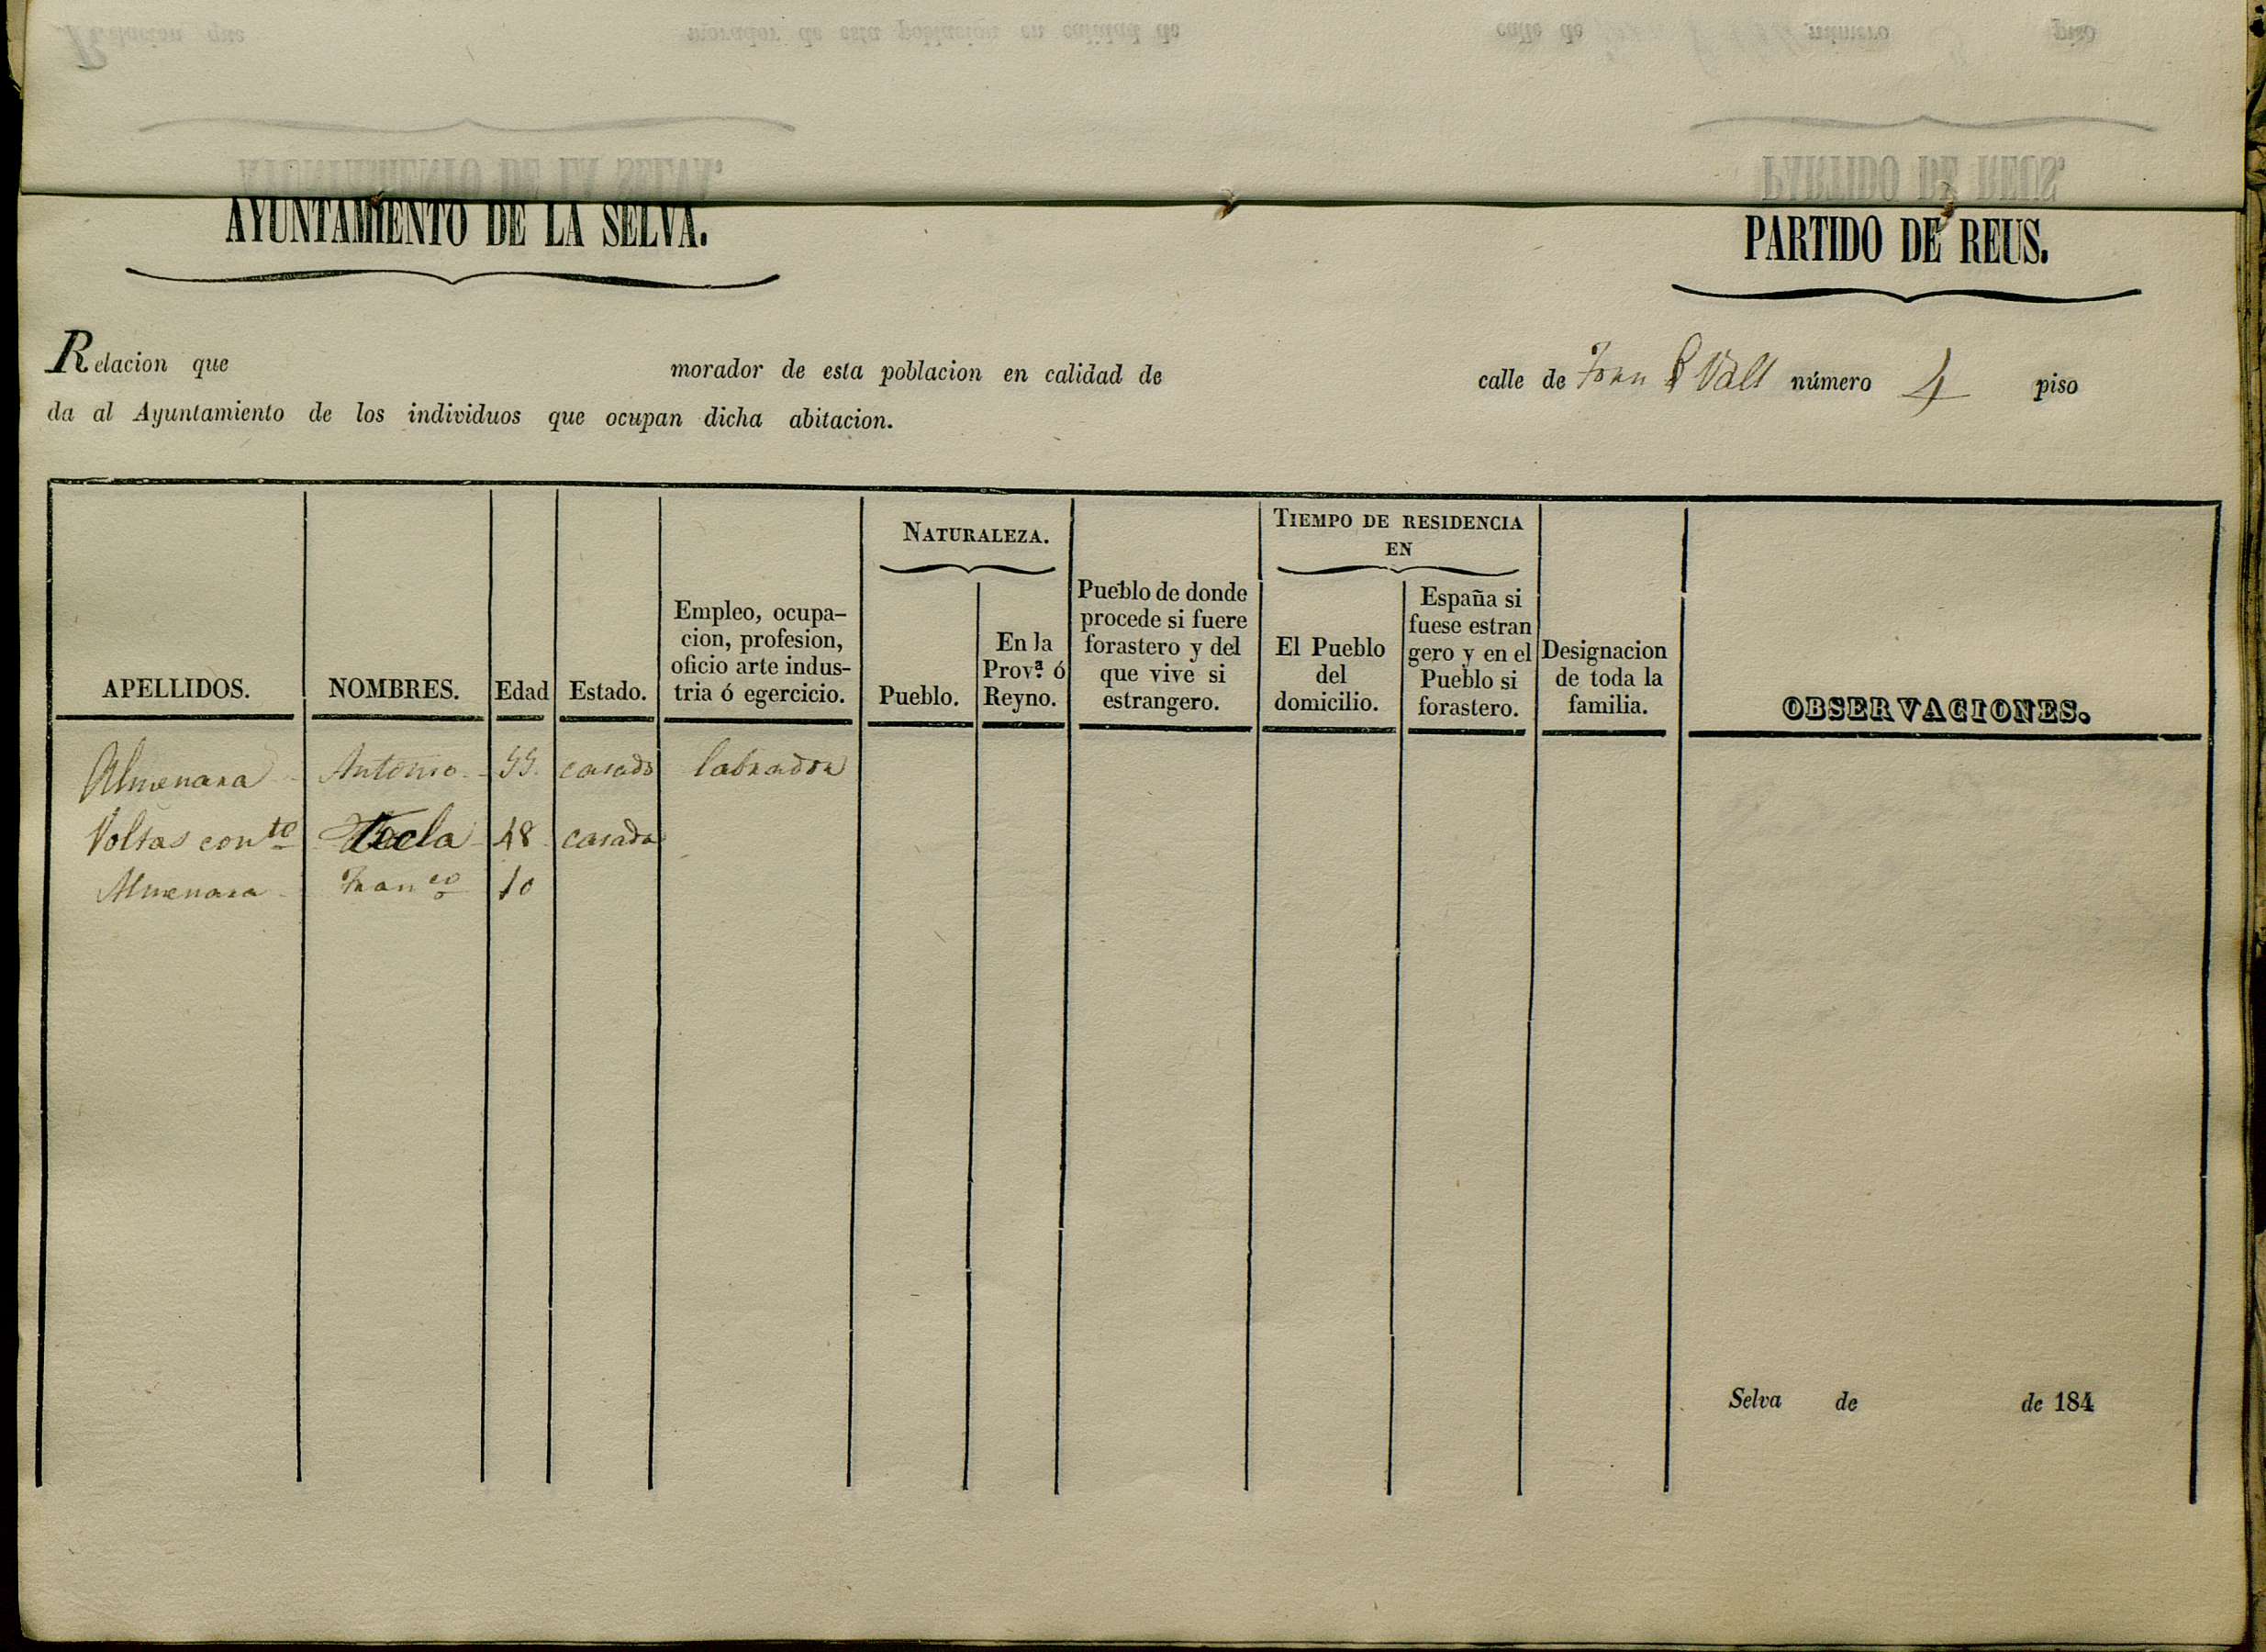 AYUNTAMIENTO DE LA SELVA.
PARTIDO DE REUS.
Relacion que morador de esta poblacion en calidad de calle de Vall número 4 piso
da al Ayuntamiento de los individuos que ocupan dicha abitacion.
NATURALEZA.
TIEMPO DE RESIDENCIA
EN
APELLIDOS.
NOMBRES.
Edad
Estado.
Empleo, ocupa-
cion, profesion,
oficio arte indus-
tria ó egercicio.
Pueblo.
En la
Prov.ª ó
Reyno.
Pueblo de donde
procede si fuere
forastero y del
que vive si
estrangero.
El Pueblo
del
domicilio.
España si
fuese estran
gero y en el
Pueblo si
forastero.
Designacion
de toda la
familia.
OBSERVACIONES.
Almenara Antonio 55 casado labrador
Voltas conte Tecla 48 casada
Almenara Franco 10
Selva de de 184